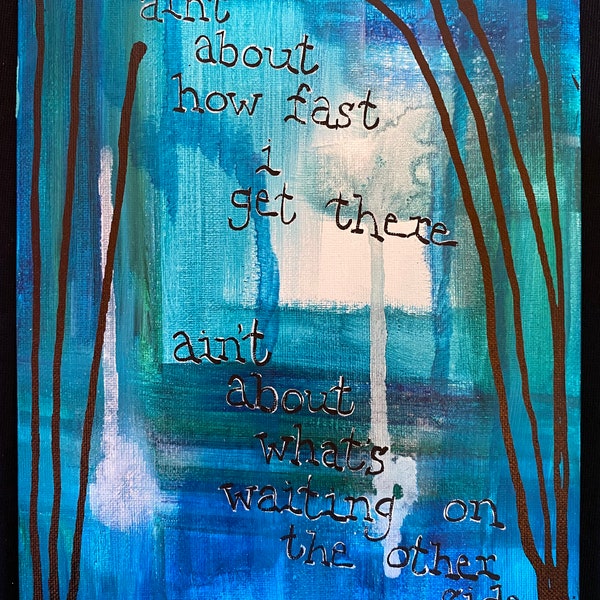 ain't
about
how fast
i
get there
ain't
about
what's
waiting on
the other
side